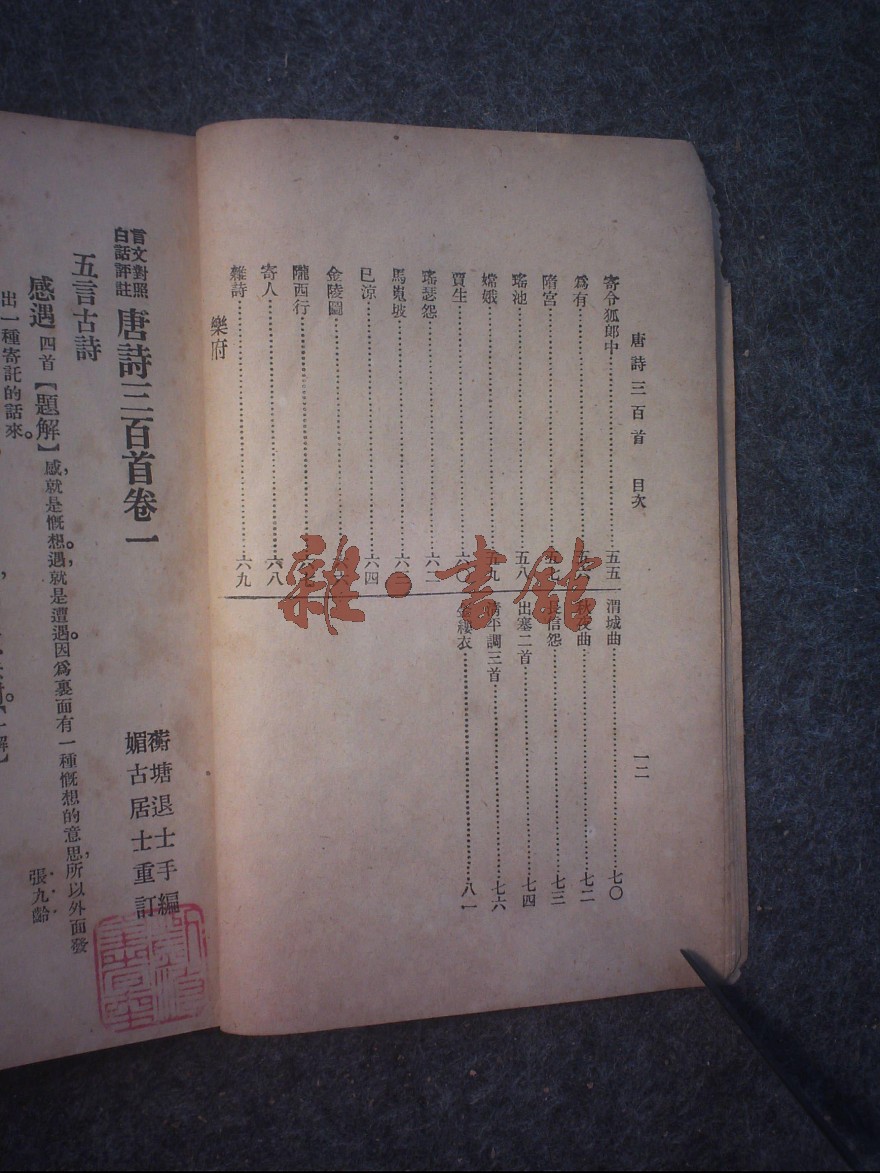 唐詩三百首 目次
一二
寄令狐郎中 五五
爲有
隋宮
瑤池 五八
嫦娥 五九
賈生
瑤瑟怨
馬嵬坡
已涼 六四
金陵圖
隴西行
寄人 六八
雜詩 六九
樂府
渭城曲 七〇
秋夜曲 七二
長信怨 七三
出塞二首 七四
清平調三首 七六
金縷衣 八一
雜·書館
言文對照
白話評註
唐詩三百首卷一
蘅塘退士手編
媚古居士重訂
五言古詩
感遇 四首 【題解】 感就是慨想。遇就是遭遇。因爲裏面有一種慨想的意思,所以外面發
張九齡
出一種寄託的話來。